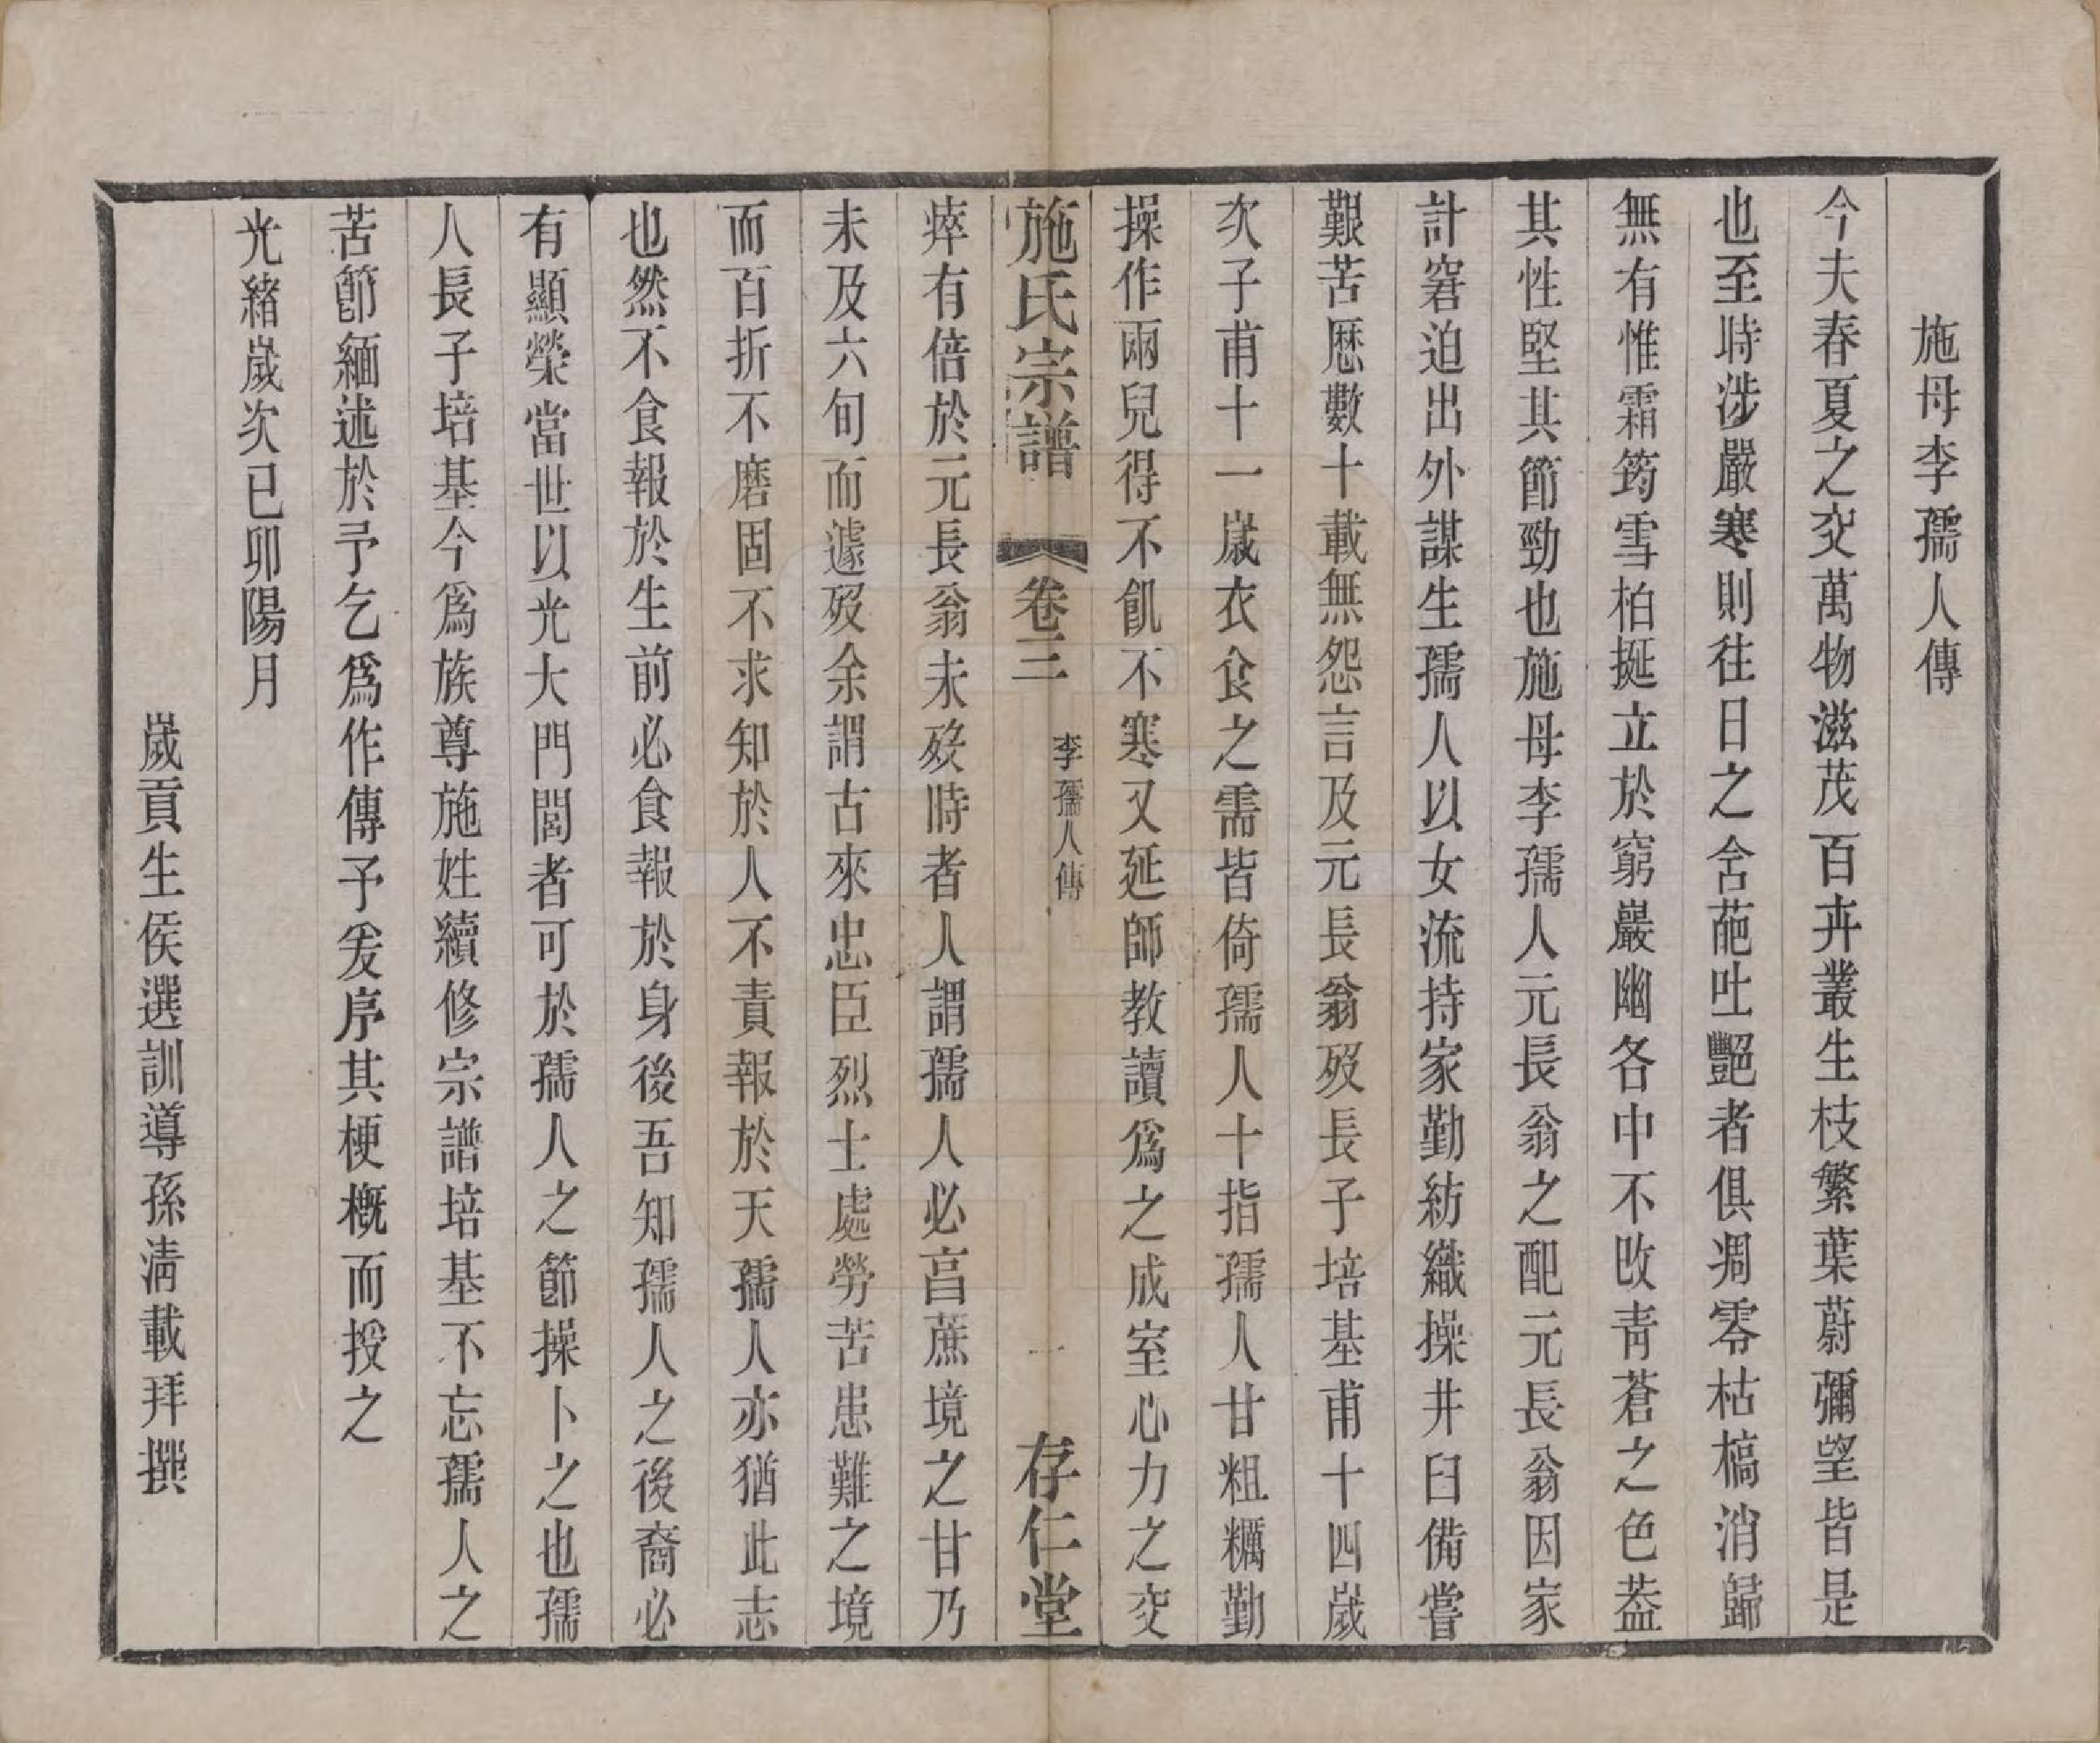 施母李孺人傳
今夫春夏之交萬物滋茂百卉叢生枝繁葉蔚彌望皆是
也至時涉嚴寒則往日之含葩吐艷者俱凋零枯槁消歸
無有惟霜筠雪柏挺立於窮巖幽谷中不改青蒼之色葢
其性堅其節勁也施母李孺人元長翁之配元長翁因家
計窘迫出外謀生孺人以女流持家勤紡織操井臼備嘗
艱苦厯數十載無怨言及元長翁歿長子培基甫十四嵗
次子甫十一嵗衣食之需皆倚孺人十指孺人甘粗糲勤
操作兩兒得不飢不寒又延師教讀爲之成室心力之交
施氏宗譜
卷三
李孺人傳
一
存仁堂
瘁有倍於元長翁未歿時者人謂孺人必亯蔗境之甘乃
未及六旬而遽歿余謂古來忠臣烈士處勞苦患難之境
而百折不磨固不求知於人不責報於天孺人亦猶此志
也然不食報於生前必食報於身後吾知孺人之後裔必
有顯榮當世以光大門閭者可於孺人之節操卜之也孺
人長子培基今爲族尊施姓續修宗譜培基不忘孺人之
苦節緬述於予乞爲作傳予爰序其梗概而授之
光緒嵗次已卯陽月
嵗貢生候選訓導孫清載拜撰